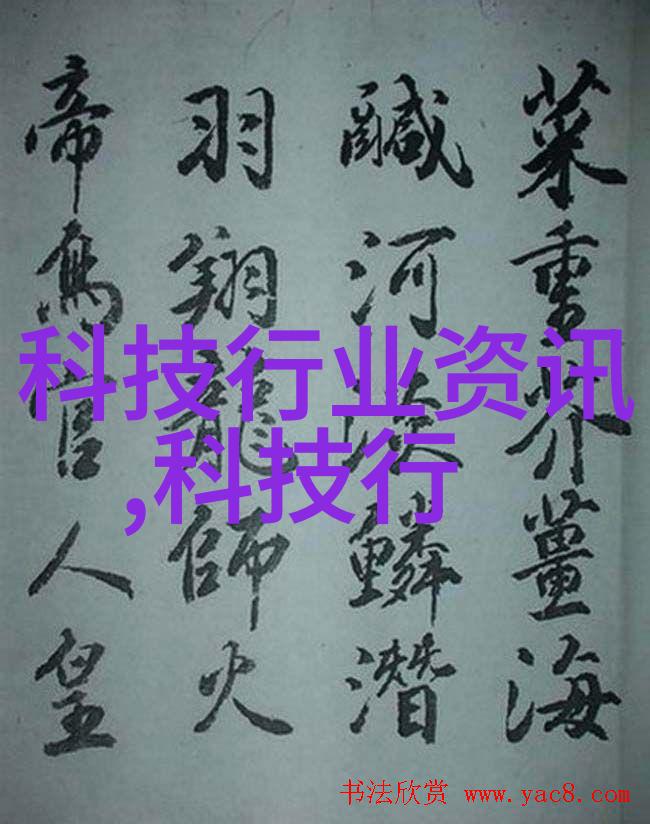 菜重芥薑海
鹹河淡鱗潛
羽翔龍師火
帝鳥官人皇
科技行业资讯
,科技行
书法欣赏 www.yac8.com